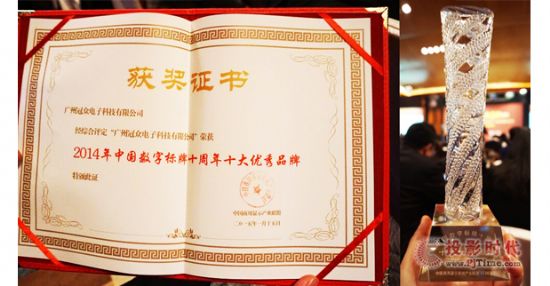 获奖证书
广州冠众电子科技有限公司
经综合评定“广州冠众电子科技有限公司”荣获
2014年中国数字标牌十周年十大优秀品牌
特颁此证
中国商用显示产业联盟
二〇一五年一月十五日
投影时代
www.PjTime.com